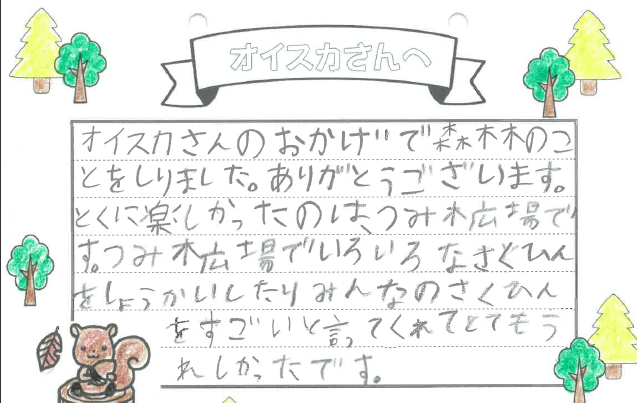 オイスカさんへ
オイスカさんのおかげで森林のこ
とをしりました。ありがとうございます。
とくに楽しかったのは、つみ木広場で
す。つみ木広場でいろいろなさくひん
をしょうかいしたりみんなのさくひん
をすごいと言ってくれてとてもう
れしかったです。